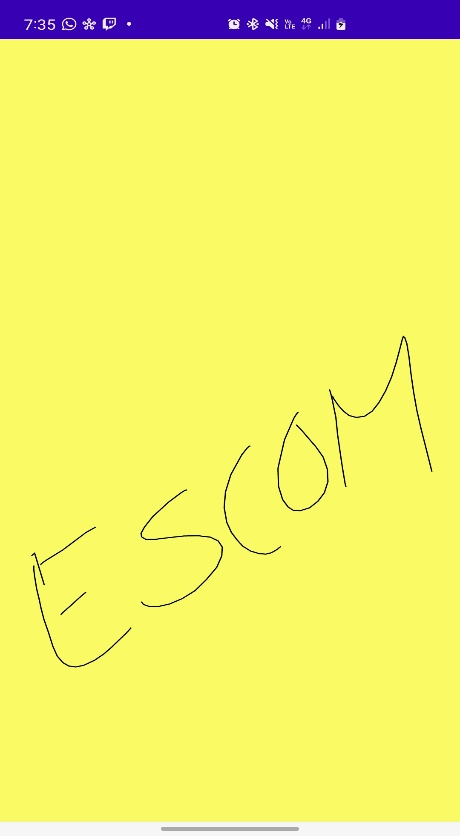 7:35 Vo LTE 4G
ESCOM